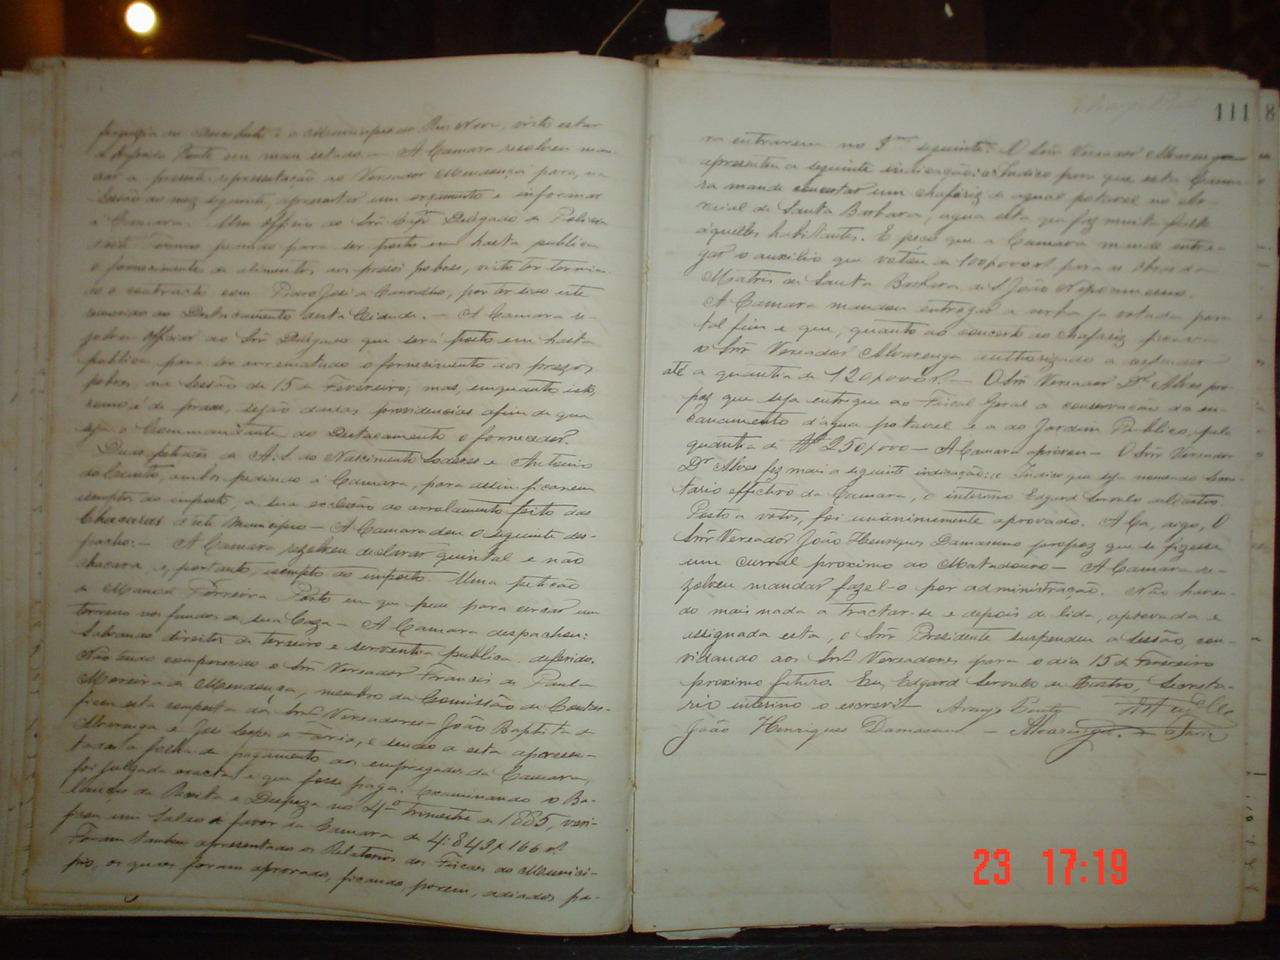 freguesia de Santa Luzia e o Municipio do Rio Novo, visto estar
a referida Ponte em mau estado. — A Camara resolveu man-
dar a presente representação ao Vereador Mendonça para, na
Sessão do mez seguinte, apresentar um orçamento e informar
a Camara. Um officio do Snr. Delegado de Policia
deste Termo pedindo para ser posto em hasta publica
o fornecimento de alimentos aos presos pobres, visto ter termina-
do o contracto com Carvalho, por ter sido este
removido do Destacamento desta Cidade. — A Camara re-
solveu officiar ao Snr. Delegado que será posto em hasta
publica para ser arrematado o fornecimento aos presos
pobres, na Sessão de 15 de Fevereiro; mas, emquanto isto,
sejão dadas providencias afim de que
seja o Commandante do Destacamento o fornecedor.
Duas petições de A. L. do Nascimento e Antonio
ambos pedindo á Camara, para assim ficarem
isemptos do imposto, a sua exclusão do arrolamento feito das
Chacaras d'este Municipio — A Camara deu o seguinte des-
pacho: — A Camara resolveu declarar quintal e não
chacara e, portanto, isempto do imposto. Uma petição
de Manoel Ferreira Porto em que pede para cercar um
terreno nos fundos de sua Caza — A Camara despachou:
Salvando direitos de terceiro e serventia publica, deferido.
Não tendo comparecido o Snr. Vereador Francisco de Paula
Moreira de Mendonça, membro da Comissão de Contas,
ficou esta composta dos Snrs. Vereadores — João Baptista de
Alvarenga e José de Faria, e sendo a esta apresen-
tada a folha de pagamento dos empregados da Camara,
foi julgada exacta e que fosse paga. Examinando o Ba-
lancete da Receita e Despeza no 4º Trimestre de 1885, veri-
ficou um Saldo a favor da Camara de 4:843$166 rs.
Foram tambem apresentados os Relatorios dos Fiscaes do Munici-
pio, os quaes foram aprovados, ficando, porem, adiados pa-
111
ra entrarem no seguinte. O Snr. Vereador Alvarenga
apresentou a seguinte indicação: Indico para que esta Cama-
ra mande concertar um chafariz de agua potavel no ar-
raial de Santa Barbara, agua esta que faz muita falta
áquelles habitantes. E peço que a Camara mande entre-
gar o auxilio que votou de 100$000 rs para as obras da
Matriz de Santa Barbara de S. João Nepomuceno.
A Camara mandou entregar a verba já votada para
tal fim e que, quanto ao concerto do chafariz,
o Snr. Vereador Alvarenga authorizado a despender
até a quantia de 120$000 rs. — O Snr. Vereador Dr. Alves pro-
poz que seja entregue ao Fiscal Geral a conservação do en-
canamento d'agua potavel e a do Jardim Publico, pela
quantia de 250$000 — A Camara aprovou — O Snr. Vereador
Dr. Alves fez mais a seguinte indicação: Indico que seja nomeado Secre-
tario effectivo da Camara, o interino Edgard Servulo de Castro.
Posto a votos, foi unanimemente aprovado. A Ca, digo, O
Snr. Vereador João Henriques Damasceno propoz que se fizesse
um curral proximo ao Matadouro — A Camara re-
zolveu mandar fazel-o por administração. Não haven-
do mais nada a tractar-se e depois de lida, aprovada e
assignada esta, o Snr. Presidente suspendeu a sessão, con-
vidando aos Snrs. Vereadores para o dia 15 de Fevereiro
proximo futuro. Eu, Edgard Servulo de Castro, Secreta-
rio interino o escrevi. Araujo
João Henriques Damasceno — Alvarenga — Faria
23 17:19